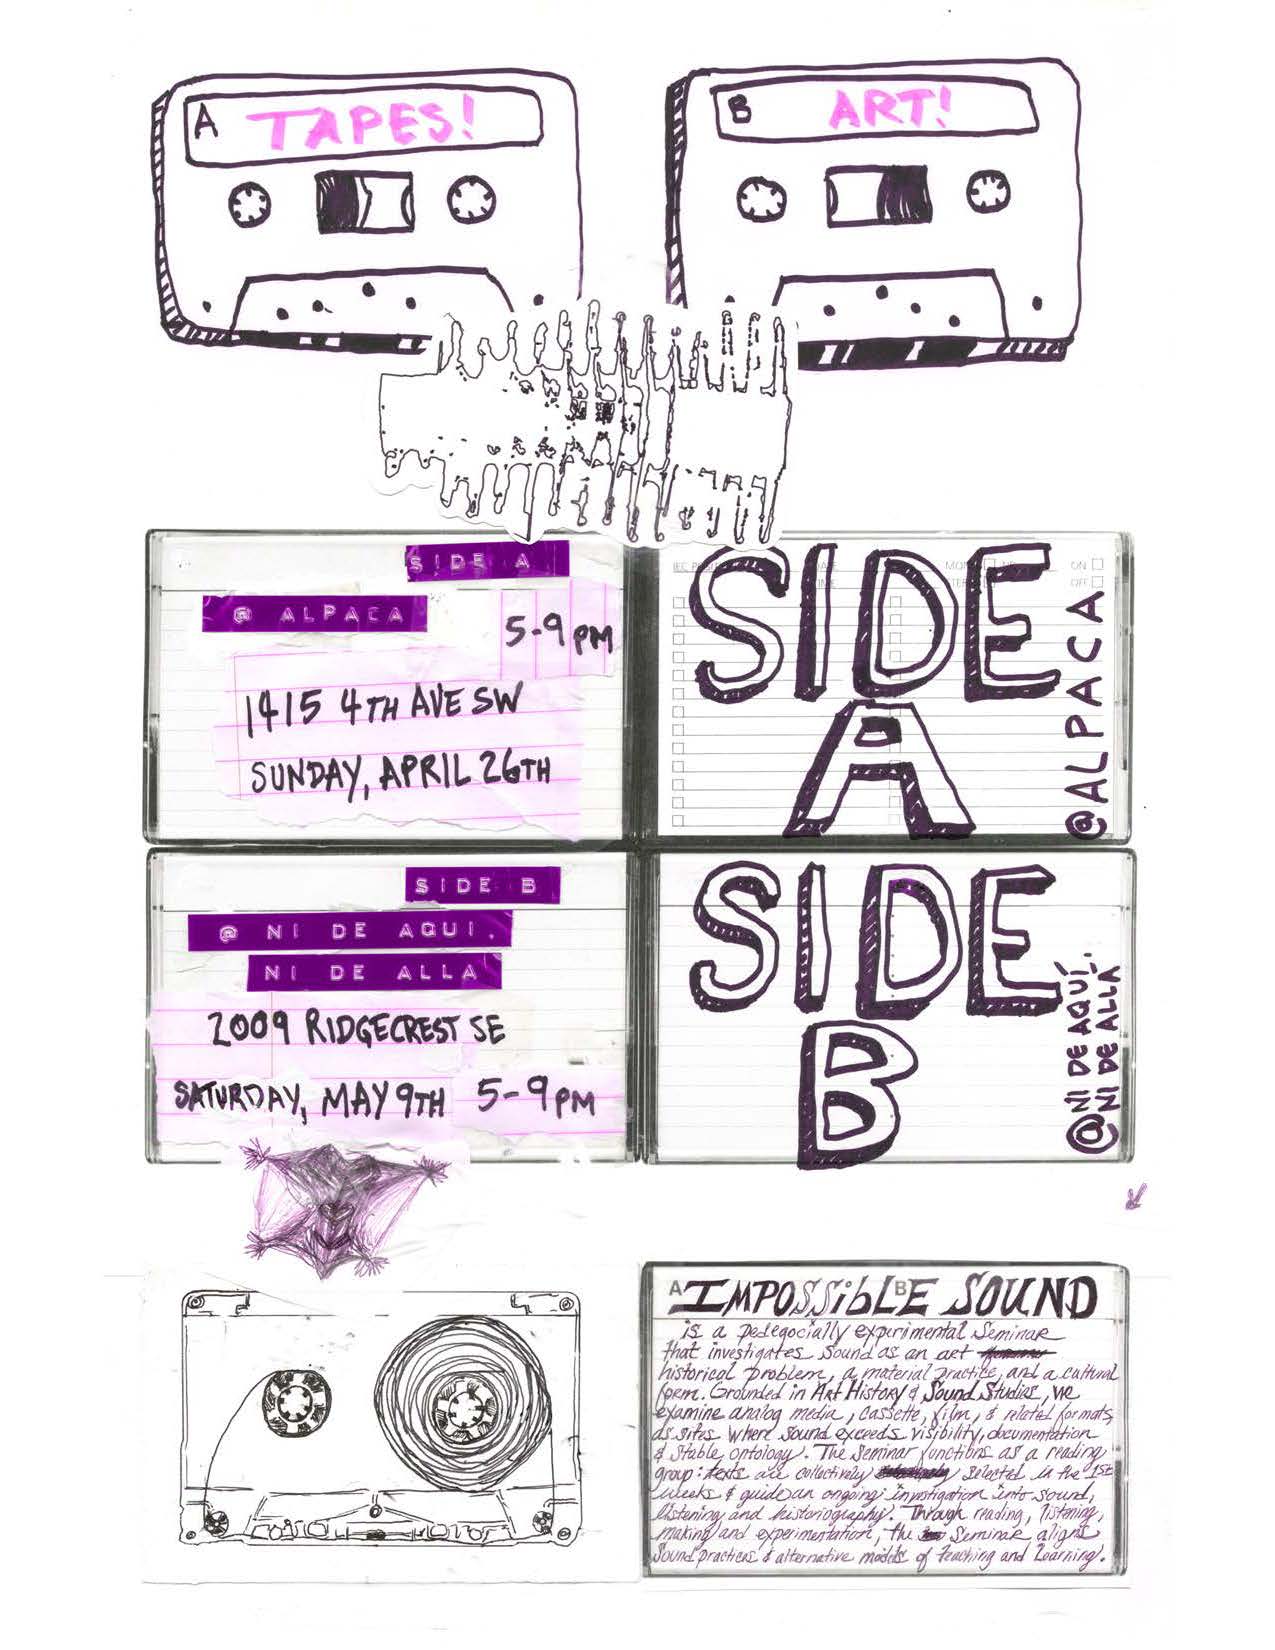 A TAPES!
B ART!
SIDE A
@ ALPACA
5-9 PM
1415 4TH AVE SW
SUNDAY, APRIL 26TH
ON
OFF
SIDE
A
@ALPACA
SIDE B
@ NI DE AQUI.
NI DE ALLA
2009 RIDGECREST SE
SATURDAY, MAY 9TH 5-9PM
SIDE
B
@NI DE AQUÍ.
NI DE ALLA
A B
IMPOSSiBLE SOUND
is a pedegocially experimental Seminar
that investigates Sound as an art
historical problem, a material practice, and a cultural
form. Grounded in Art History & Sound Studies, we
examine analog media, cassette, film, & related formats,
as sites where sound exceeds visibility, documentation
& stable ontology. The Seminar functions as a reading
group: texts are collectively selected in the 1ST
weeks & guide an ongoing investigation into sound,
listening and historiography. Through reading, listening,
making and experimentation, the Seminar aligns
sound practices & alternative models of teaching and learning.